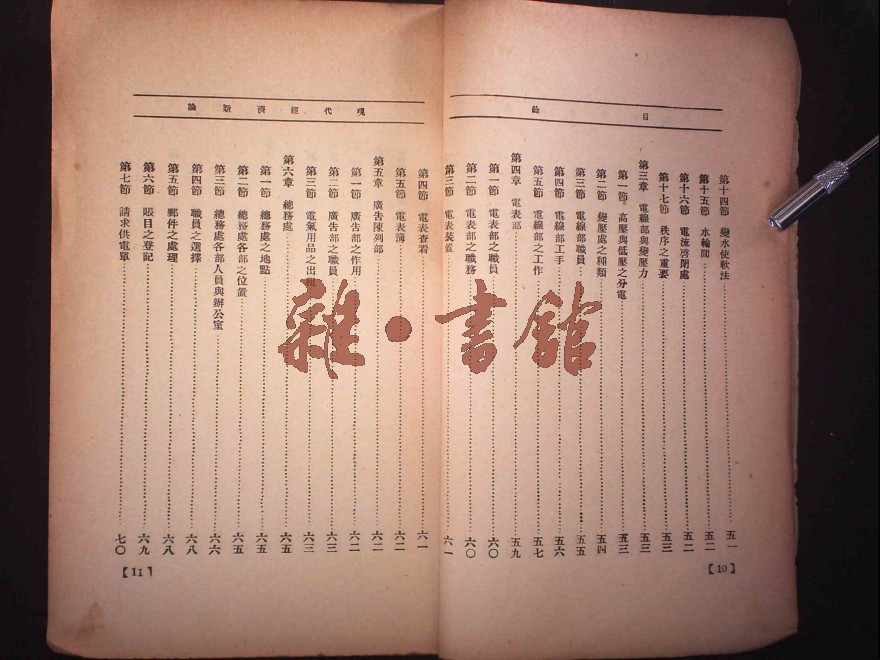 目錄
第十四節 變水使軟法 五一
第十五節 水輪間 五二
第十六節 電流啓閉處 五二
第十七節 秩序之重要 五三
第三章 電線部與變壓力 五三
第一節 高壓與低壓之分電 五三
第二節 變壓處之種類 五四
第三節 電線部職員 五五
第四節 電線部工手 五六
第五節 電線部之工作 五七
第四章 電表部 五九
第一節 電表部之職員 六〇
第二節 電表部之職務 六〇
第三節 電表裝置 六一
【10】
現代經濟新論
第四節 電表查看 六一
第五節 電表簿 六二
第五章 廣告陳列部 六二
第一節 廣告部之作用 六二
第二節 廣告部之職員 六三
第三節 電氣用品之出租 六三
第六章 總務處 六五
第一節 總務處之地點 六五
第二節 總務處各部之位置 六五
第三節 總務處各部人員與辦公室 六六
第四節 職員之選擇 六八
第五節 郵件之處理 六八
第六節 賬目之登記 六九
第七節 請求供電單 七〇
【11】
雜·書館